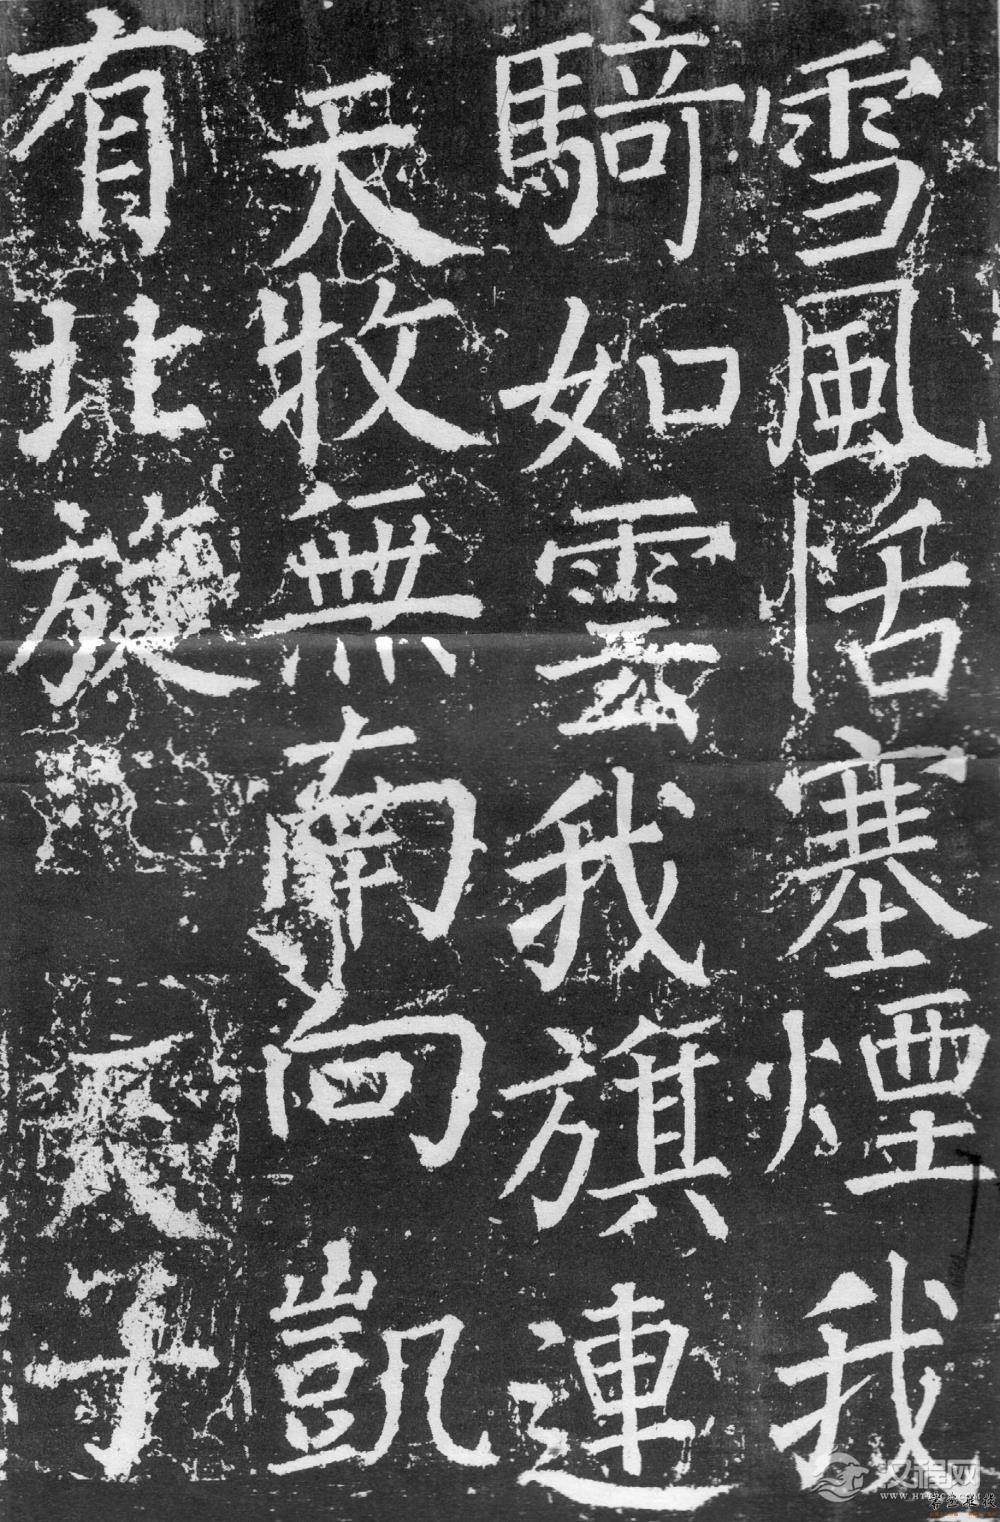 雪風恬塞煙我
騎如雲我旗連
天牧無南向凱
有北旋天子
汉程网
WWW.HTTPCN.COM